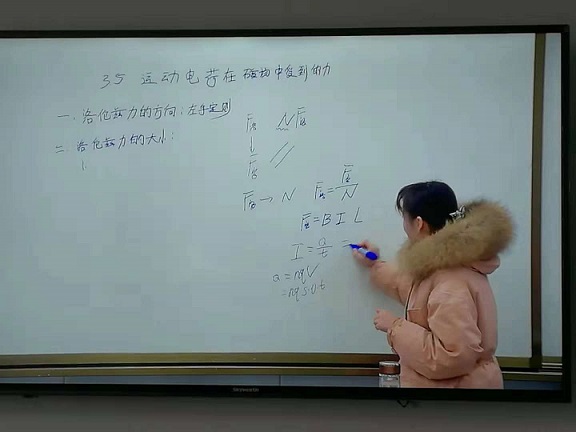 35 运动电荷在磁场中受到的力
一、洛伦兹力的方向:左手定则
二、洛伦兹力的大小:
1.
F安 N F洛
↓
F洛 //
F安 → N F洛 = F安/N
F安 = B I L
I = Q/t =
Q = nqV
= nqSvt